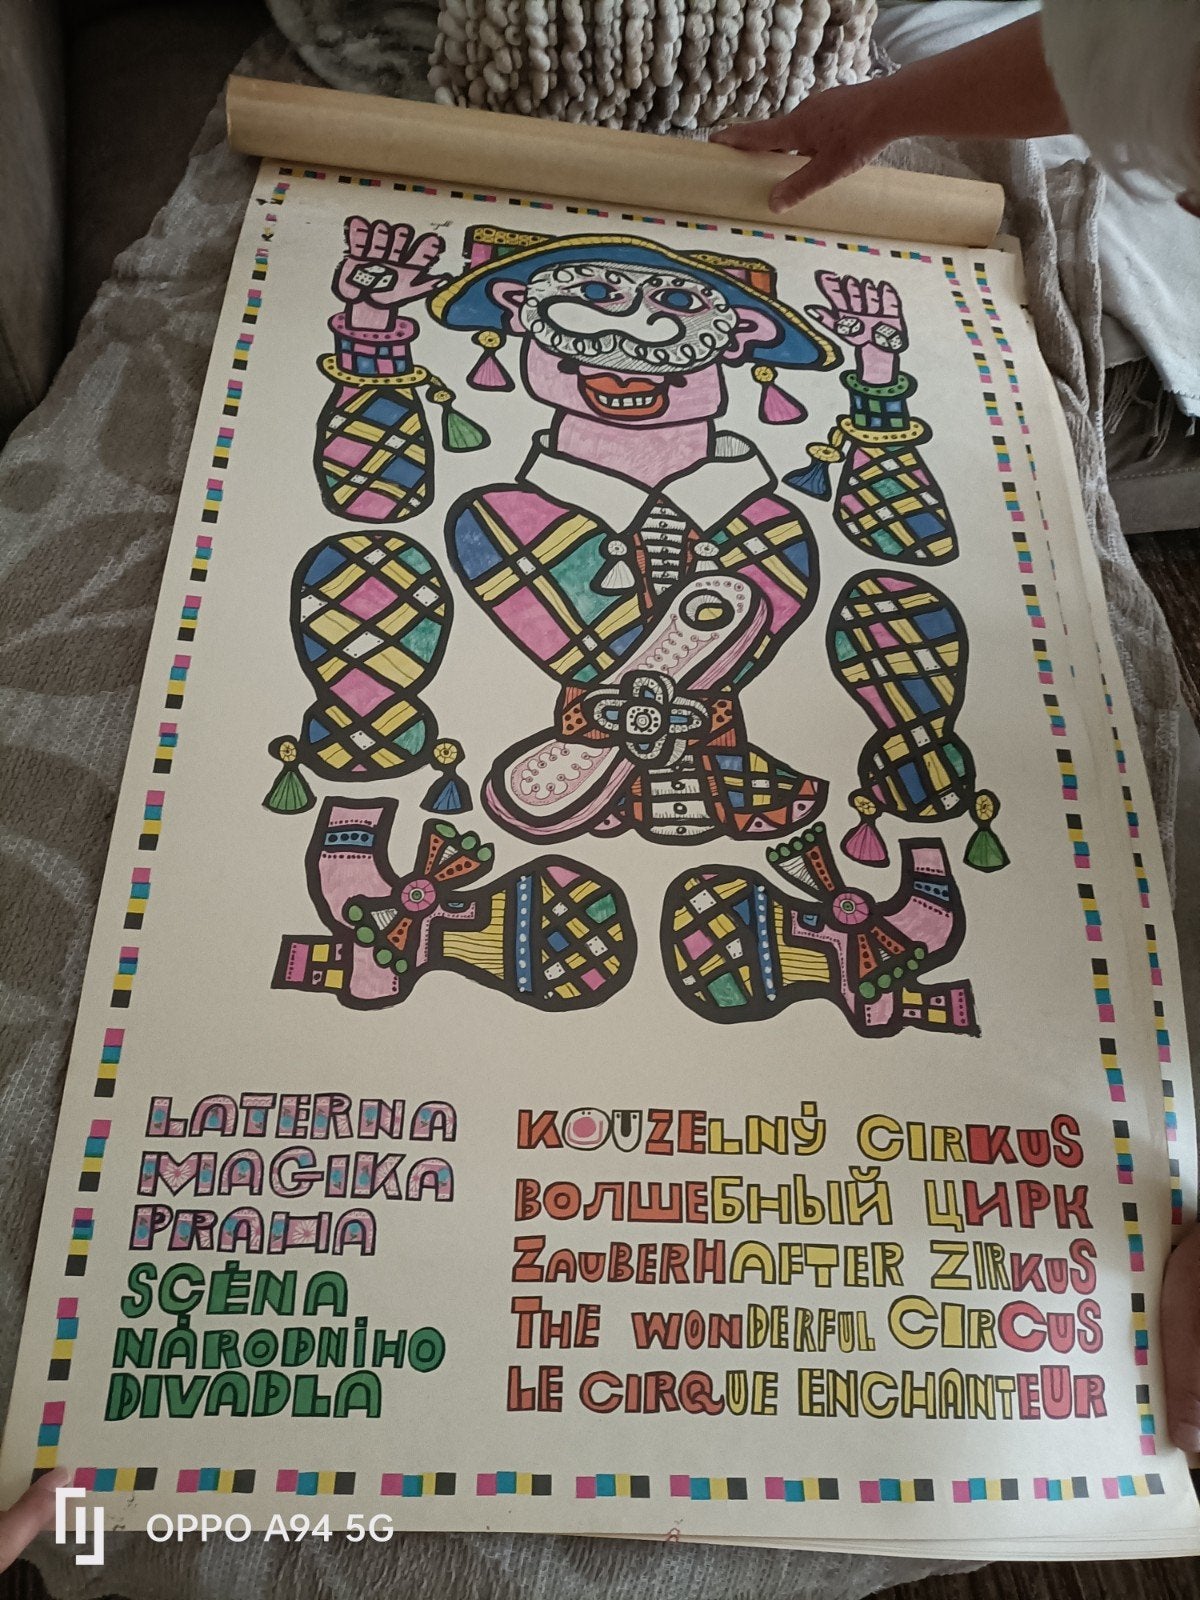 LATERNA
MAGIKA
PRAHA
SCÉNA
NÁRODNÍHO
DIVADLA
KOUZELNÝ CIRKUS
ВОЛШЕБНЫЙ ЦИРК
ZAUBERHAFTER ZIRKUS
THE WONDERFUL CIRCUS
LE CIRQUE ENCHANTEUR
OPPO A94 5G